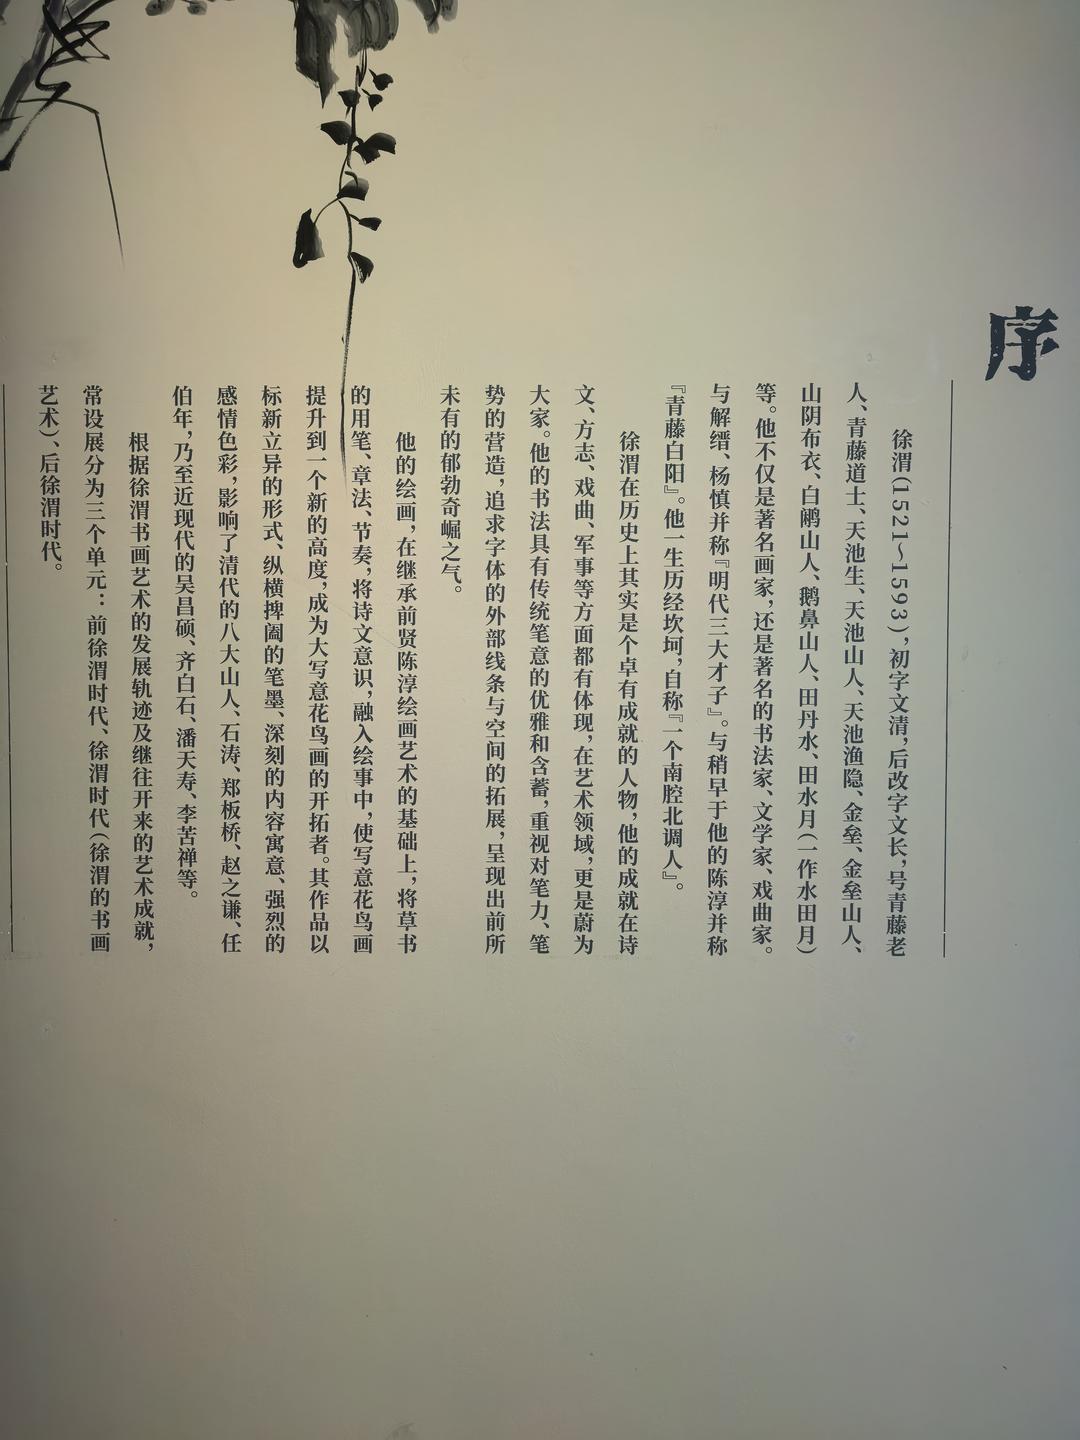 序
徐渭(1521～1593),初字文清,后改字文长,号青藤老
人、青藤道士、天池生、天池山人、天池渔隐、金垒、金垒山人、
山阴布衣、白鹇山人、鹅鼻山人、田丹水、田水月(一作水田月)
等。他不仅是著名画家,还是著名的书法家、文学家、戏曲家。
与解缙、杨慎并称『明代三大才子』。与稍早于他的陈淳并称
『青藤白阳』。他一生历经坎坷,自称『一个南腔北调人』。
徐渭在历史上其实是个卓有成就的人物,他的成就在诗
文、方志、戏曲、军事等方面都有体现,在艺术领域,更是蔚为
大家。他的书法具有传统笔意的优雅和含蓄,重视对笔力、笔
势的营造,追求字体的外部线条与空间的拓展,呈现出前所
未有的郁勃奇崛之气。
他的绘画,在继承前贤陈淳绘画艺术的基础上,将草书
的用笔、章法、节奏,将诗文意识,融入绘事中,使写意花鸟画
提升到一个新的高度,成为大写意花鸟画的开拓者。其作品以
标新立异的形式、纵横捭阖的笔墨、深刻的内容寓意、强烈的
感情色彩,影响了清代的八大山人、石涛、郑板桥、赵之谦、任
伯年,乃至近现代的吴昌硕、齐白石、潘天寿、李苦禅等。
根据徐渭书画艺术的发展轨迹及继往开来的艺术成就,
常设展分为三个单元：前徐渭时代、徐渭时代(徐渭的书画
艺术)、后徐渭时代。